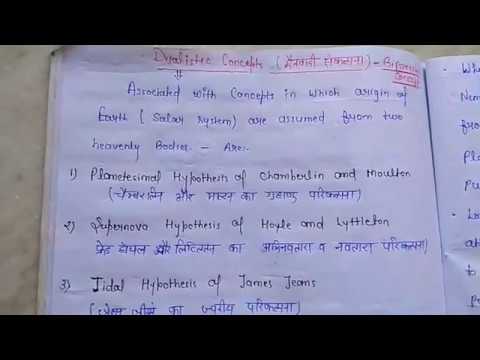 Dualistic Concepts (द्वैतवादी संकल्पना) -
Associated with Concepts in which origin of
Earth (Solar System) are assumed from two
heavenly Bodies. - Are:-
1) Planetesimal Hypothesis of Chamberlin and Moulton
(चैम्बरलिन और का ग्रहाणु परिकल्पना)
2) Supernova Hypothesis of Hoyle and Lyttleton
फ्रेड होयल और लिटिलटन का व नवतारा परिकल्पना)
3) Tidal Hypothesis of James Jeans
(जेम्स जीन्स का ज्वारीय परिकल्पना)